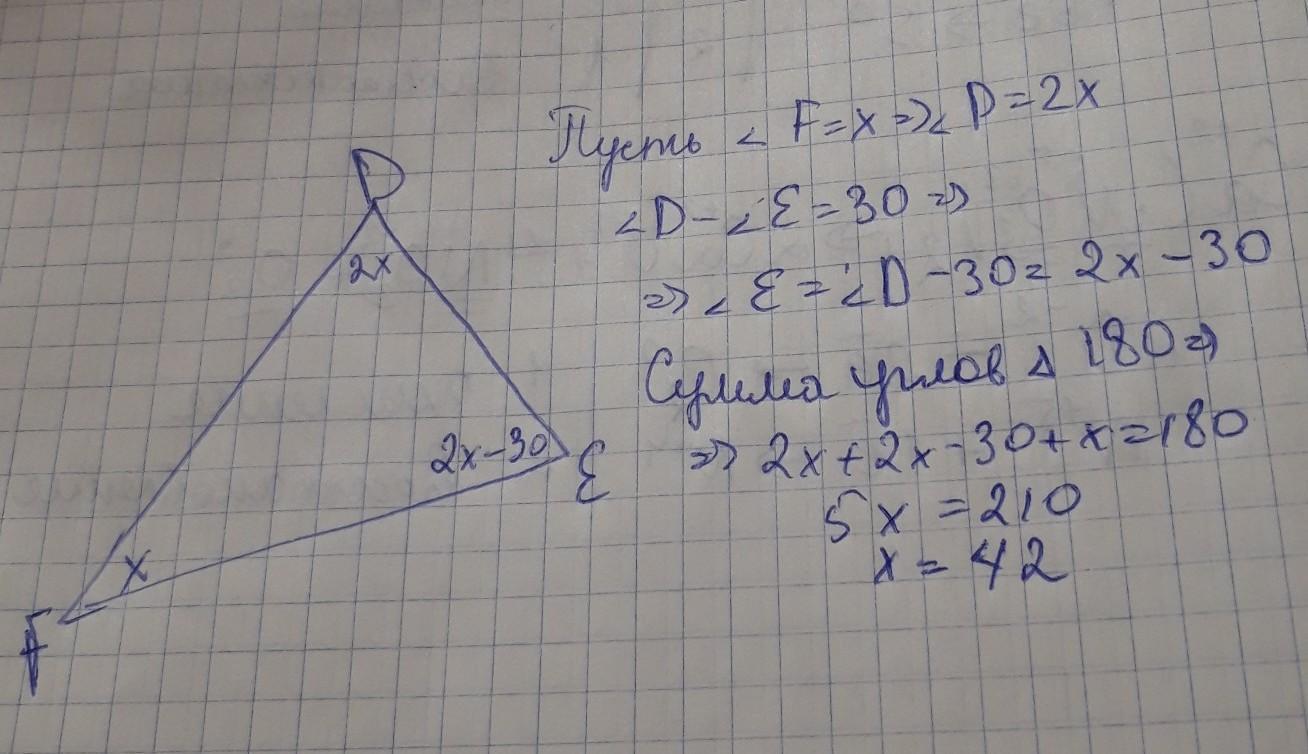 D
2x
2x-30
E
x
F
Пусть ∠ F=x⇒∠ D=2x
∠D-∠E=30 ⇒
⇒∠ E=∠D-30= 2x-30
Сумма углов Δ 180⇒
⇒ 2x+2x-30+x=180
5x=210
x=42